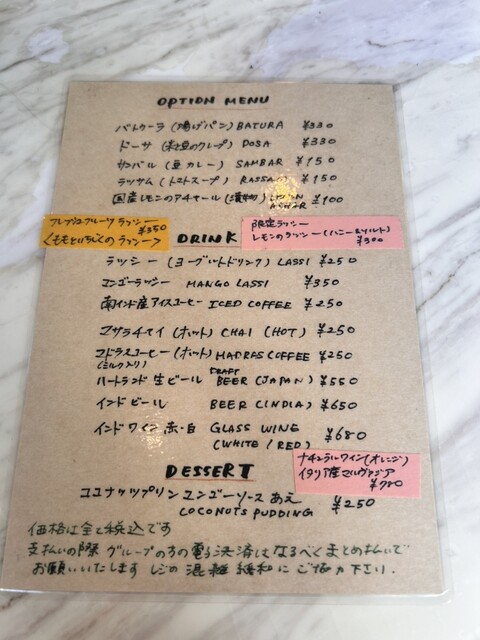 OPTION MENU
バトゥーラ (揚げパン) BATURA ¥330
ドーサ (米と豆のクレープ) DOSA ¥330
サンバル (豆カレー) SAMBAR ¥150
ラッサム (トマトスープ) RASSAM ¥150
国産レモンのアチャール (漬物) LEMON ACHAR ¥100
フレッシュフルーツラッシー ¥350
<ももといちじくのラッシー>
限定ラッシー
レモンのラッシー (ハニー&ソルト) ¥300
DRINK
ラッシー (ヨーグルトドリンク) LASSI ¥250
マンゴーラッシー MANGO LASSI ¥350
南インド産アイスコーヒー ICED COFFEE ¥250
マサラチャイ (ホット) CHAI (HOT) ¥250
マドラスコーヒー (ホット) MADRAS COFFEE ¥250
(ミルク入り)
ハートランド生ビール DRAFT BEER (JAPAN) ¥550
インドビール BEER (INDIA) ¥650
インドワイン 赤・白 GLASS WINE ¥680
(WHITE / RED)
ナチュラルワイン(オレンジ)
イタリア産マルヴァジア
¥780
DESSERT
ココナッツプリン マンゴーソースあえ ¥250
COCONUTS PUDDING
価格は全て税込です
支払いの際 グループの方の電子決済はなるべくまとめ払いで
お願いいたします レジの混雑緩和にご協力下さい.